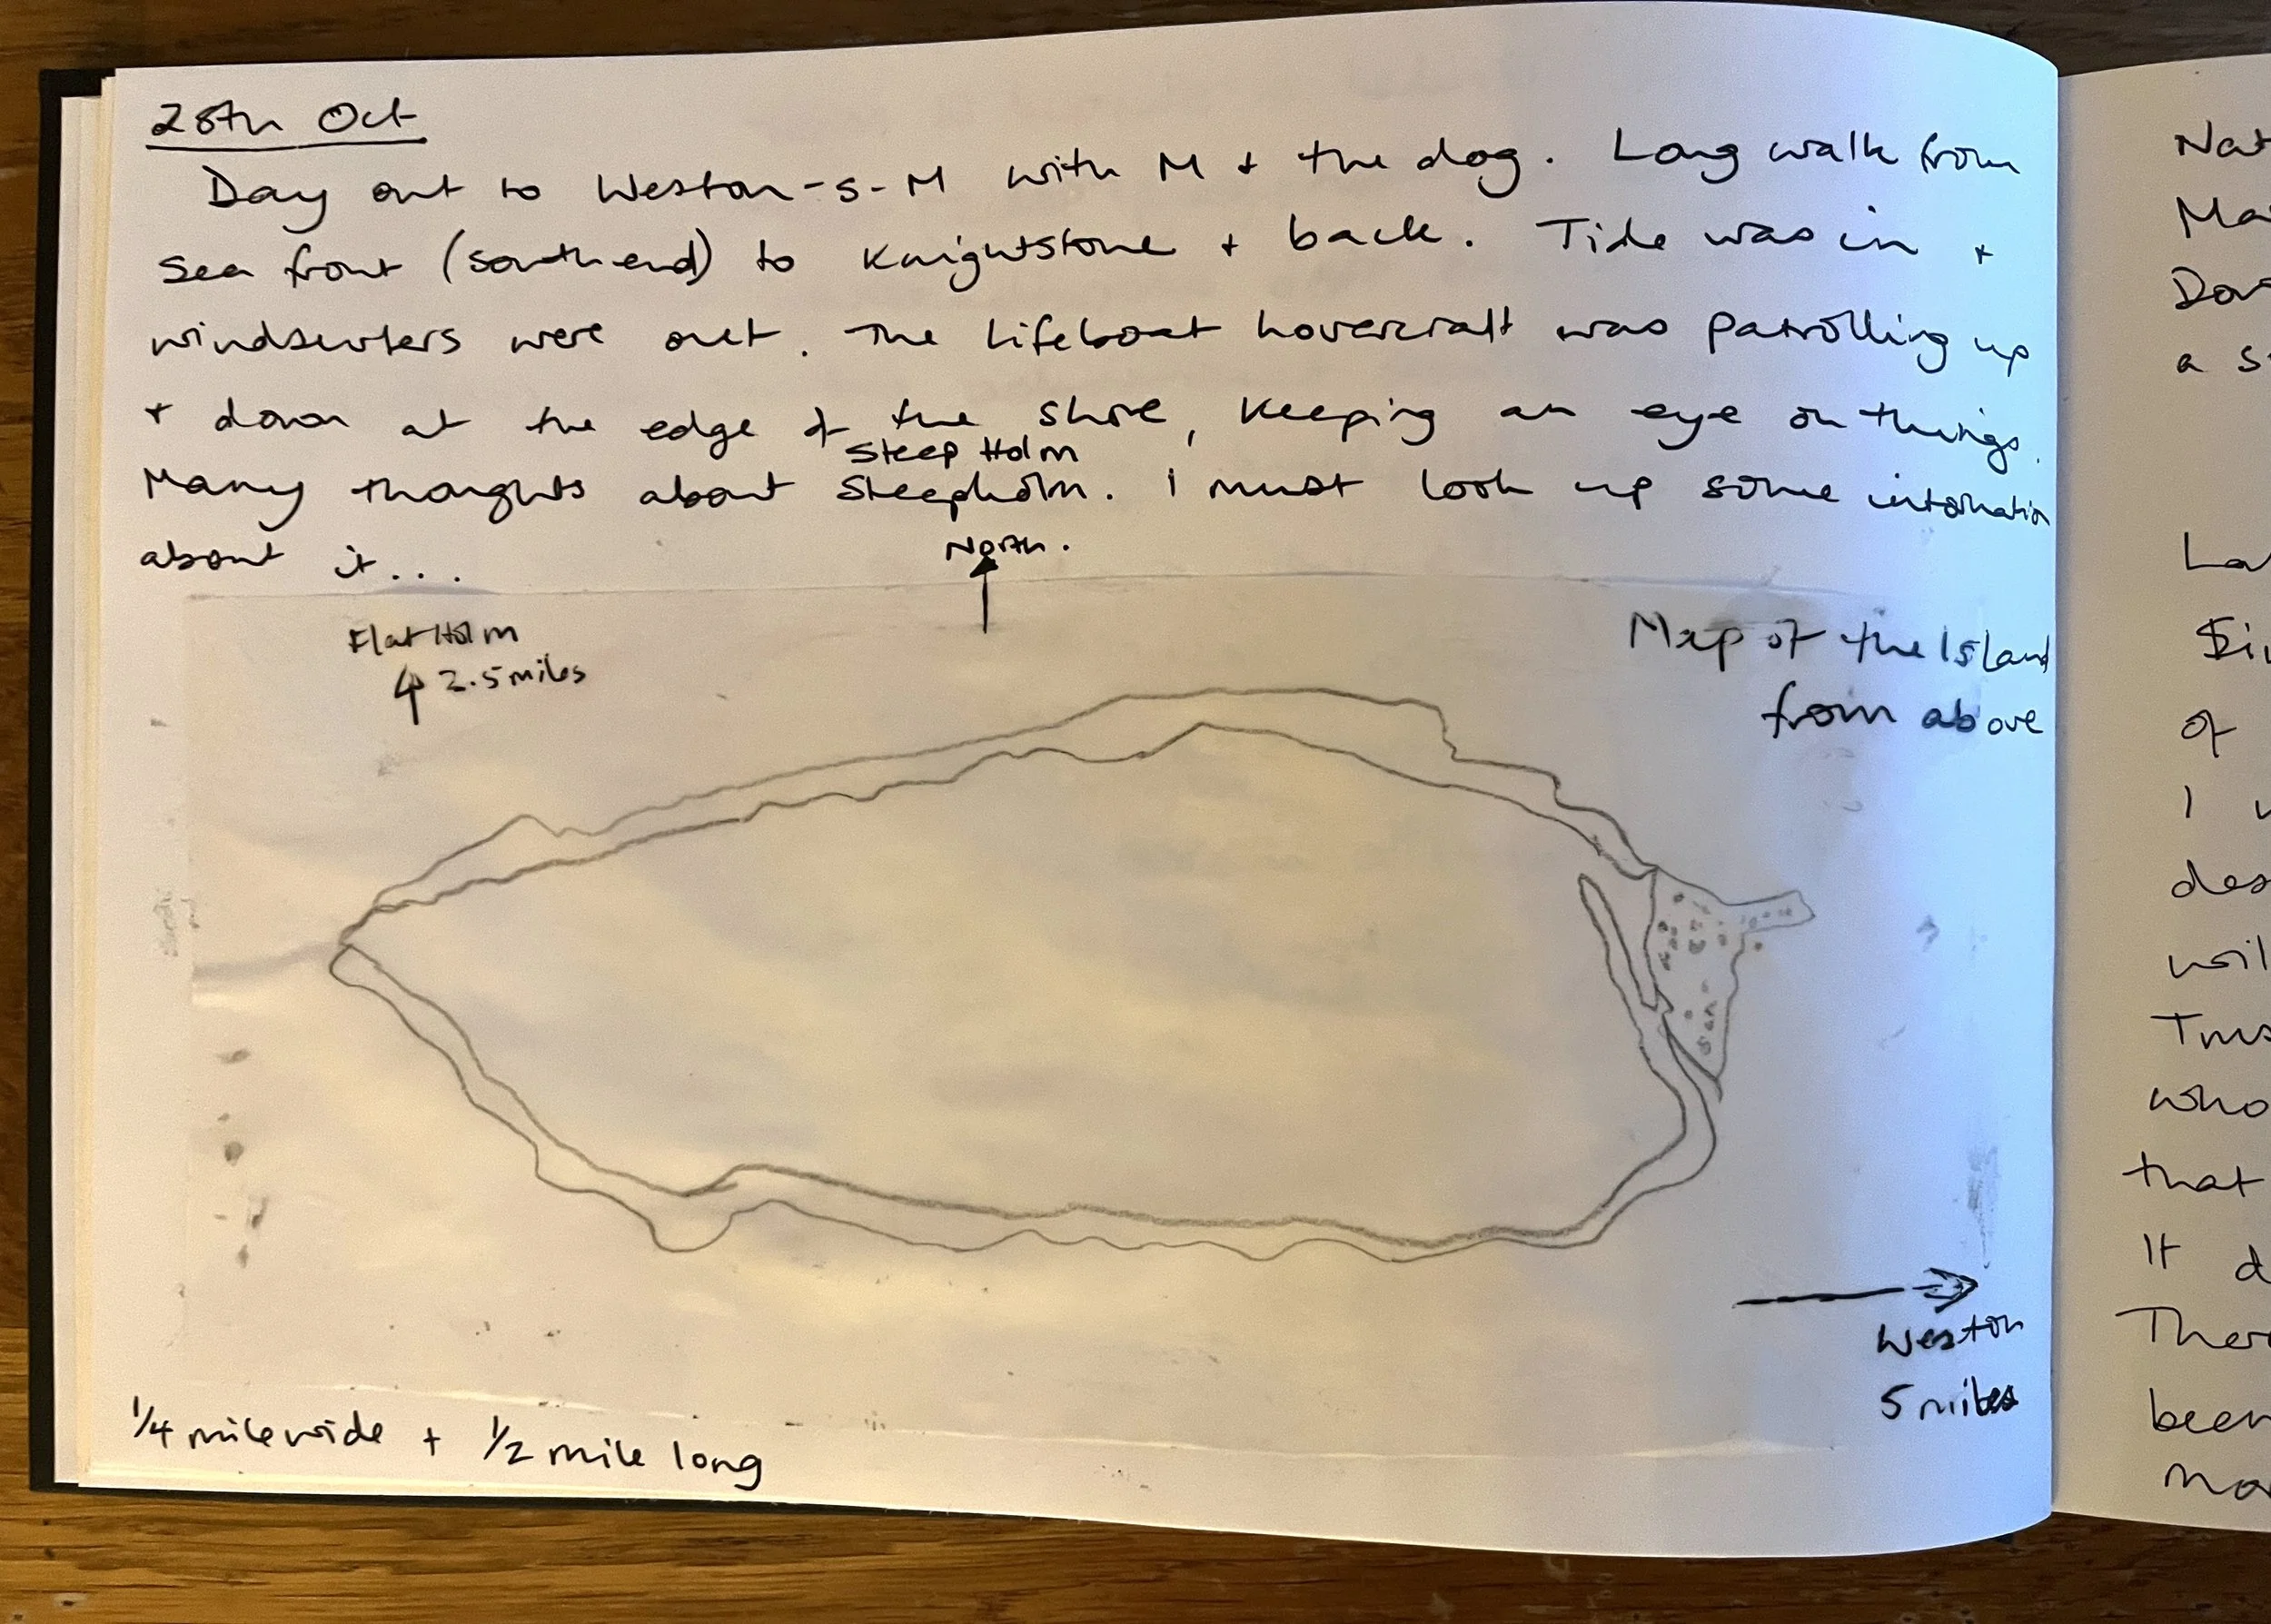 28th Oct
Day out to Weston-s-M with M + the dog. Long walk from
sea front (south end) to Knightstone + back. Tide was in +
windsurfers were out. The Lifeboat hovercraft was patrolling up
+ down at the edge of the shore, keeping an eye on things.
Steep Holm
Many thoughts about Steepholm. I must look up some information
about it...
North.
Flat Holm
2.5 miles
Map of the Island
from above
Weston
5 miles
1/4 mile wide + 1/2 mile long
Nat
Ma
a s
La
of
I
des
wil
who
that
It d
Ther
been